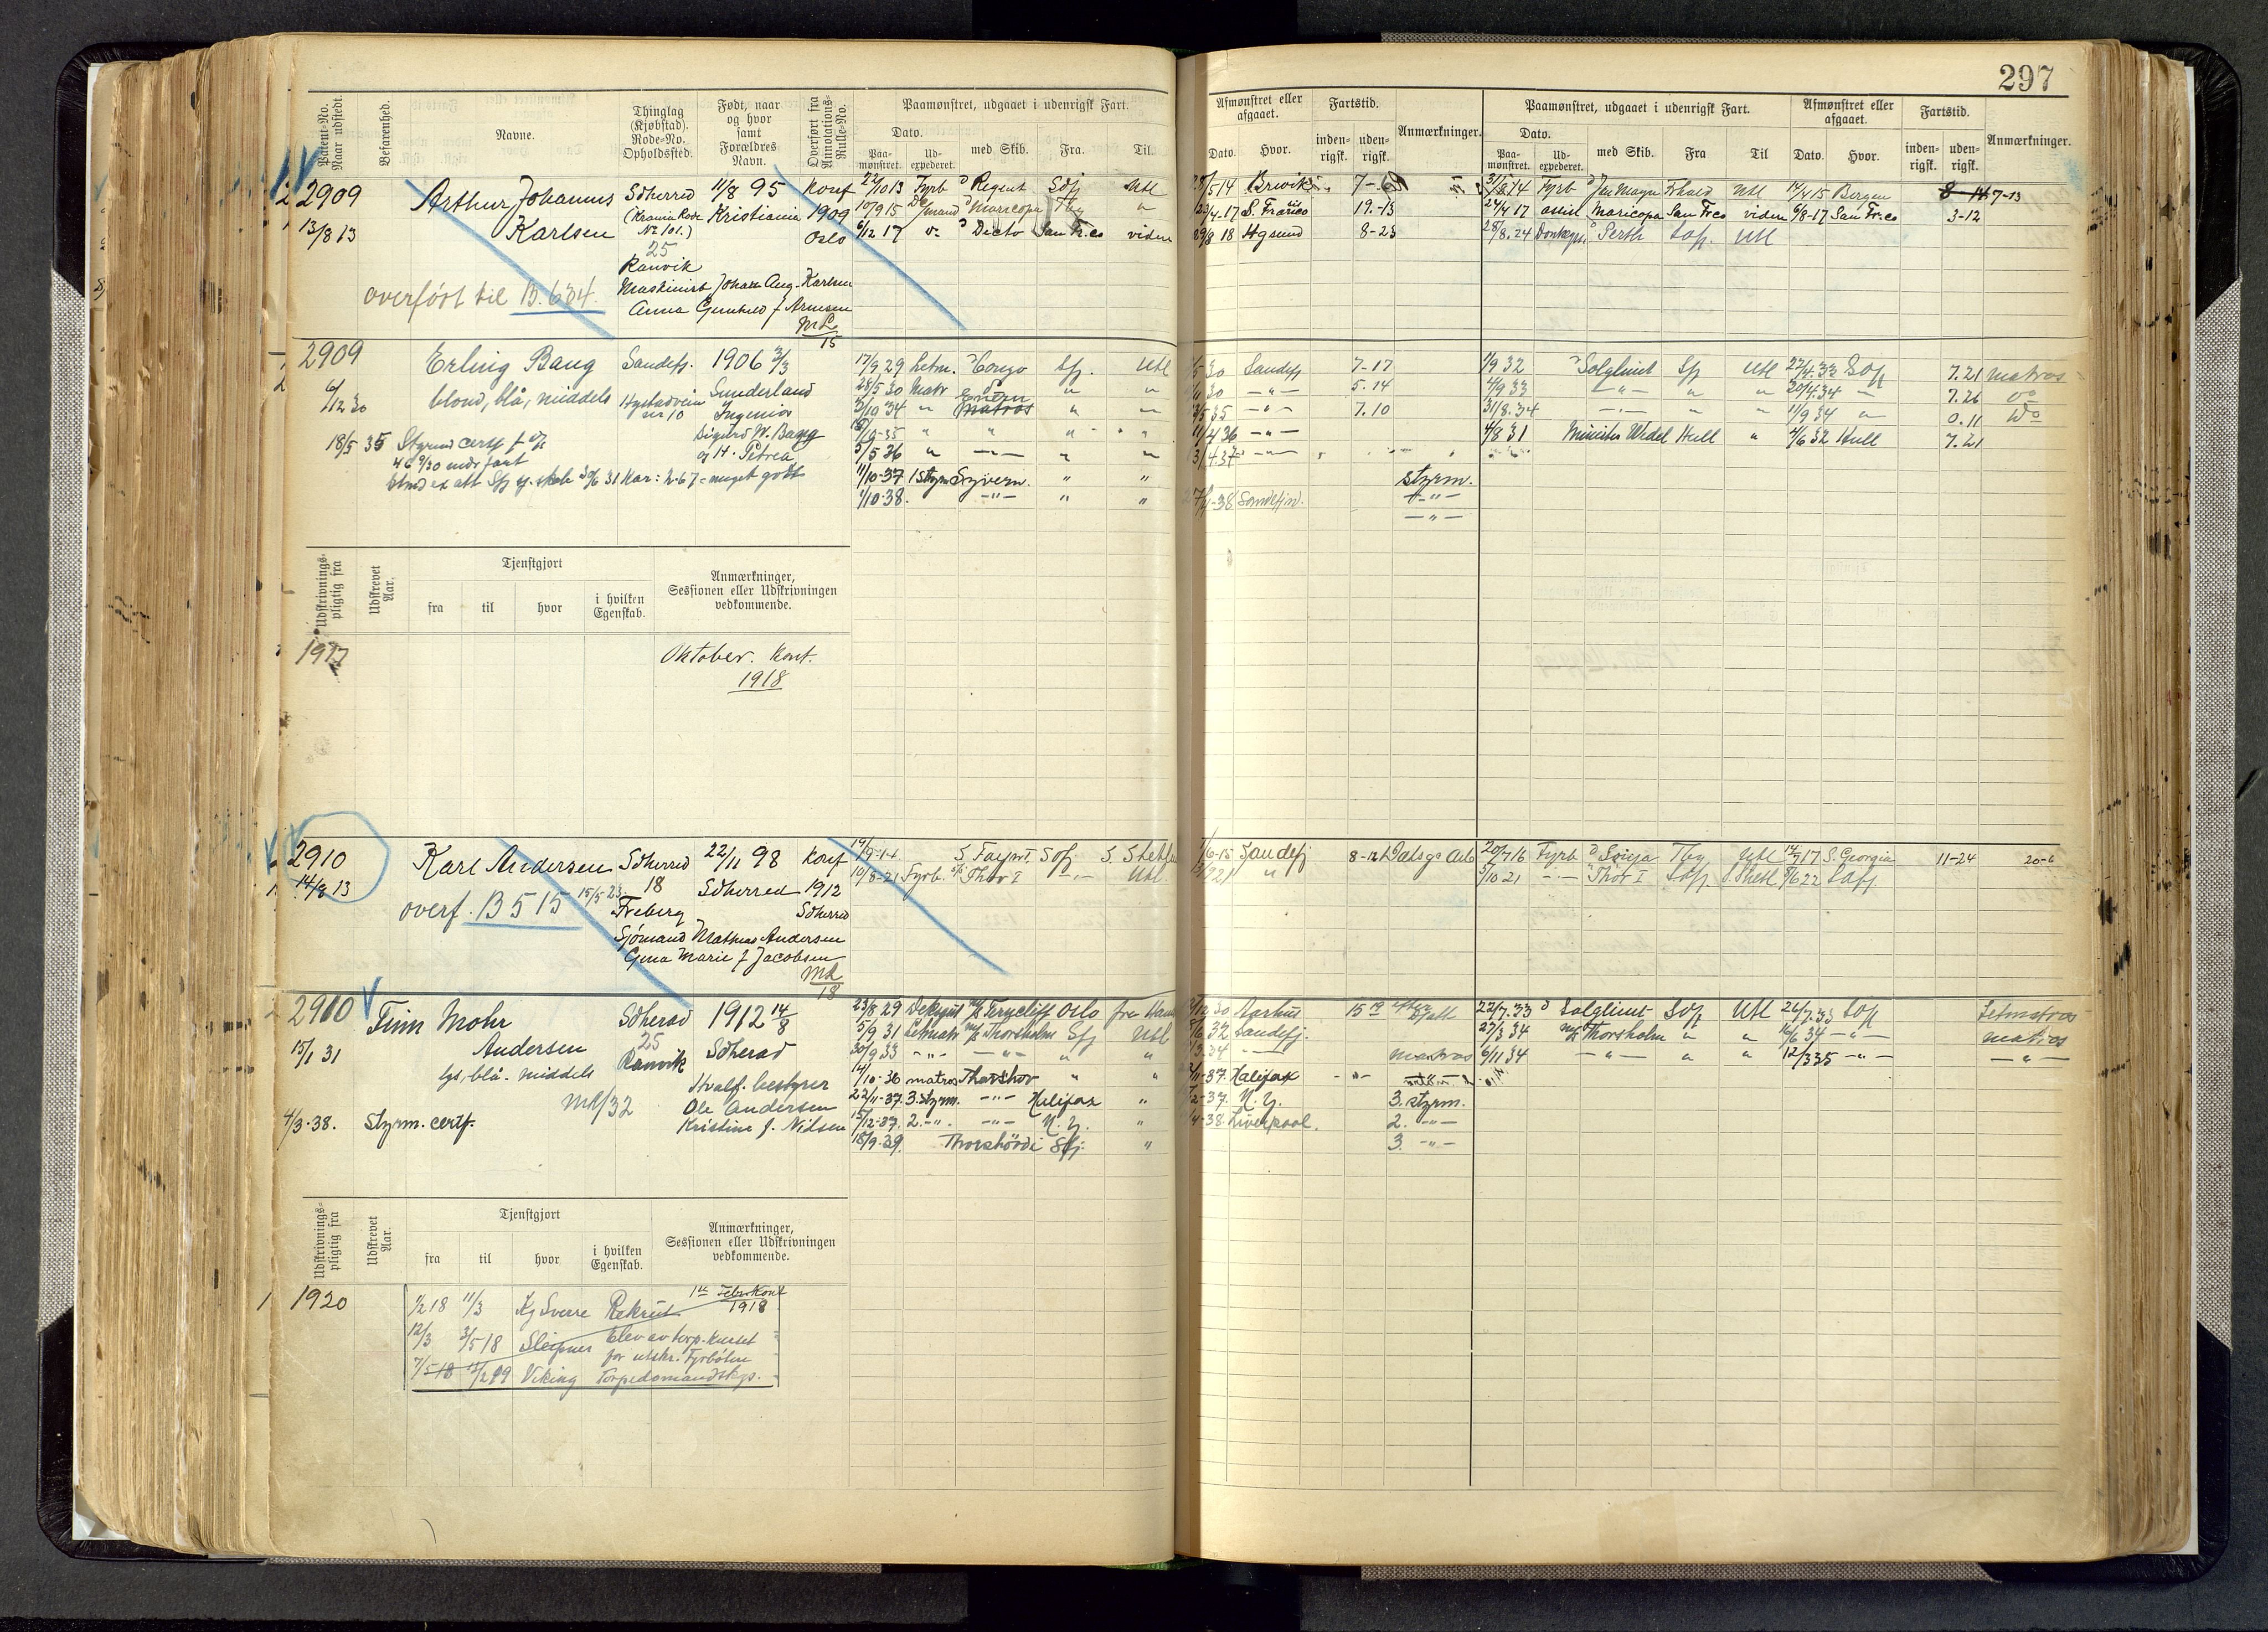 297
Patent-No. Naar udstedt.
Befarenhed.
Navne.
Thinglag (Kjøbstad). Rode-No. Opholdssted.
Født, naar og hvor samt Forældres Navn.
Overført fra Annotations-Rulle-No.
Paamønstret, udgaaet i udenrigsk Fart.
Dato.
Paa-mønstret.
Ud-expederet.
med Skib.
Fra.
Til.
Afmønstret eller afgaaet.
Dato.
Hvor.
Fartstid.
inden-rigsk.
uden-rigsk.
Anmærkninger.
Paamønstret, udgaaet i udenrigsk Fart.
Dato.
Paa-mønstret.
Ud-expederet.
med Skib.
Fra
Til
Afmønstret eller afgaaet.
Dato.
Hvor.
Fartstid.
inden-rigsk.
uden-rigsk.
Anmærkninger.
2909 Arthur Johannes Sdherred 11/8 95 Konf 22/10 13 Fyrb D Regent Sdfj Utl
13/8 13 Karlsen (Krania Rode No 101.) Kristiania 1909 Oslo 10/9 15 Maricopa Tbg
25 6/12 17 Dicto San Fr.co videre
Ranvik
Maskinist Johan Aug. Karlsen
overført til B. 634.
Anna Gunhild f Arnesen
ML 15
28/5 14 Brevik 7-
23/4-17 S. Francisco 19.-13
29/8 18 Hgsund 8-23
31/8 14 Fyrb D Jan Mayn Frhald Utl 14/4 15 Bergen 7-13
24/4 17 assist Maricopa San Fr.co videre 6/8-17 San Fr.co 3-12
28/8.24 D Perth Sdfj. Utl
2909 Erling Bang Sandefj. 1906 3/3 17/9 29 Letm. D Congo Sfj. Utl
6/12 30 blond, blå, middels Hystadvein nr 10 Sunderland 28/5 30 Matr
Ingeniør 3/10 34 matros
18/5 35 Styrmd certf Sigurd W. Bang
og H. Petrea 5/5 36
11/10-37 1 Styrm Sydvern. " "
1/10-38. -"- " "
30 Sandefj 7-17
30 -"- 5.14
35 -"- 7.10
4 36 -"-
3/4.37 -"-
27/4-38 Sandefjord.
styrm.
-"-
-"-
1/9 32 D Solglimt Sfj Utl 27/4.33 Sdfj 7.21 matros
4/9 33 -"- " " 20/4.34 " 7.26 do
31/8.34 -"- " " 11/9 34 " 0.11 do
4/8 31 Minister Wedel Hull " 4/6 32 Hull 7.21
Udskrivnings-pligtig fra
Udskrevet Aar.
Tjenstgjort
fra
til
hvor
i hvilken Egenskab.
Anmærkninger, Sessionen eller Udskrivningen vedkommende.
1917
Oktober. Kont.
1918
2910 Karl Andersen Sdherred 22/11 98 Konf
14/8 13 18 Sdherred 1912
overf. B 515 15/5-23 Freberg Sdherred
Sjømand Mathias Andersen
Gina Marie f Jacobsen
ML 18
19/9-14 S. Fayn I. Sdfj S. Shetl
10/8-21 Fyrb. Thor I -"- Utl.
6-15 Sandefj 8-12
20/7 16 Fyrb D Sonja Tbg Utl 14/7 17 S. Georgia 11-24 20-6
3/10 21 -"- Thor I Sdfj. S. Shetl 8/6 22 Sdfj
2910 Finn Mohr Sdherad 1912 14/8
15/1 31 Andersen 25 Sdherad
lys, blå. middels Ranvik Hvalf. bestyrer
ML/32 Ole Andersen
4/3-38. Styrm. certf. Kristine f. Nilsen
23/8 29 Dekgut m/s Ferncliff Oslo fra Ham
5/9 31 Letmatr m/s Thorsholm Sfj Utl
30/9 33 -"- -"- " "
14/10-36 matros Thorshov " "
22/11-37. 3. styrm. -"- Halifax "
15/12-37. 2. -"- -"- N. Y. "
18/9-39. Thorshövdi Sfj. "
30 Aarhus 15 19
6 32 Sandefj.
3.34 -"- matros
11-37. Halifax -"-
12-37. N. Y. 3. styrm.
4-38. Liverpool. 2. -"-
3. -"-
22/7.33 D Solglimt Sdfj Utl 24/7.33 Sdfj Letmatros
27/3 34 m/s Thorsholm " " 16/6 34 -"- matros
6/11 34 -"- " " 12/3 35 -"- -"-
Udskrivnings-pligtig fra
Udskrevet Aar.
Tjenstgjort
fra
til
hvor
i hvilken Egenskab.
Anmærkninger, Sessionen eller Udskrivningen vedkommende.
1920
1/2 18 11/3 Kg Sverre Rekrut 1ste Febr. Kont 1918
12/3 3/5 18 Sleipner Elev av torp. kurset
for utskr. Fyrbøtere
7/5 18 Viking Torpedomandskps.